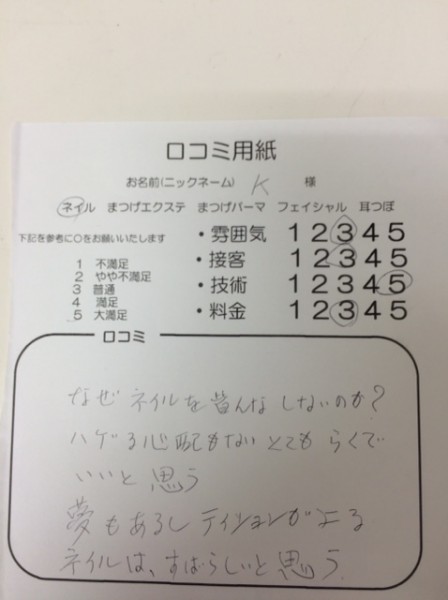 口コミ用紙
お名前(ニックネーム) K 様
ネイル まつげエクステ まつげパーマ フェイシャル 耳つぼ
下記を参考に○をお願いいたします
1 不満足
2 やや不満足
3 普通
4 満足
5 大満足
・雰囲気 1 2 3 4 5
・接客 1 2 3 4 5
・技術 1 2 3 4 5
・料金 1 2 3 4 5
口コミ
なぜネイルを皆んなしないのか?
ハゲる心配もないとてもらくで
いいと思う
夢もあるしテイションが上る
ネイルは、すばらしいと思う